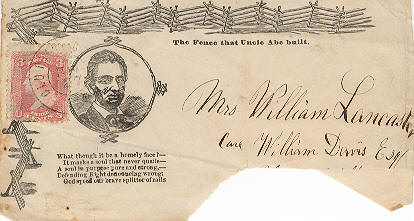 The Fence that Uncle Abe built.
3 3
Mrs William Lancaster
Care William Davis Esqr
What though it be a homely face?—
It masks a soul that never quails—
A soul in purpose pure and strong;—
Defending Right denouncing wrong;
God speed our brave splitter of rails